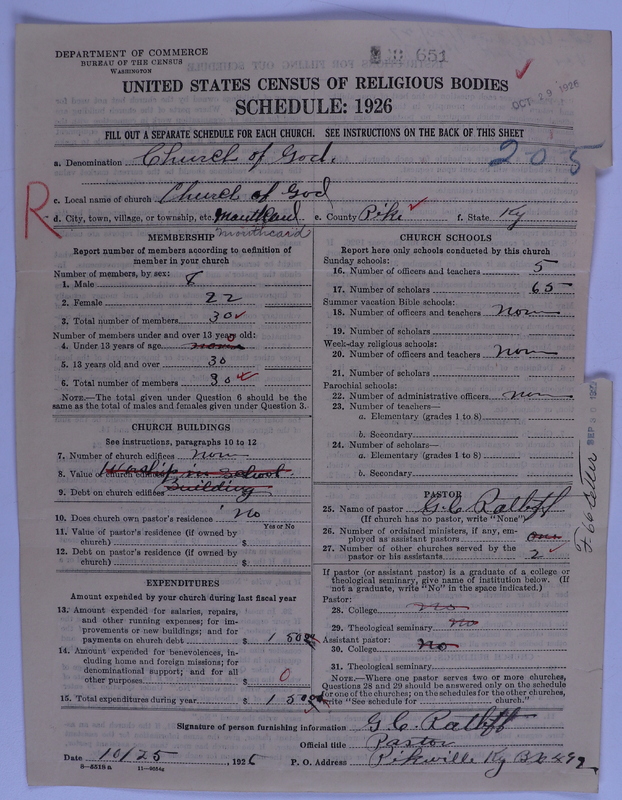 DEPARTMENT OF COMMERCE
BUREAU OF THE CENSUS
WASHINGTON
651
UNITED STATES CENSUS OF RELIGIOUS BODIES
SCHEDULE: 1926
OCT 29 1926
FILL OUT A SEPARATE SCHEDULE FOR EACH CHURCH. SEE INSTRUCTIONS ON THE BACK OF THIS SHEET
205
a. Denomination Church of God.
R
c. Local name of church Church of God
d. City, town, village, or township, etc. e. County Pike f. State Ky
Mouthcard
MEMBERSHIP
Report number of members according to definition of
member in your church
Number of members, by sex:
1. Male 8
2. Female 22
3. Total number of members 30
Number of members under and over 13 years old:
4. Under 13 years of age 0
5. 13 years old and over 30
6. Total number of members 30
NOTE.—The total given under Question 6 should be the
same as the total of males and females given under Question 3.
CHURCH BUILDINGS
See instructions, paragraphs 10 to 12
7. Number of church edifices none
8. Value of church edifices Worship in School
9. Debt on church edifices Building
10. Does church own pastor's residence No
Yes or No
11. Value of pastor's residence (if owned by
church) $
12. Debt on pastor's residence (if owned by
church) $
EXPENDITURES
Amount expended by your church during last fiscal year
13. Amount expended for salaries, repairs,
and other running expenses; for im-
provements or new buildings; and for
payments on church debt $ 150
14. Amount expended for benevolences, in-
cluding home and foreign missions; for
denominational support; and for all
other purposes $ 0
15. Total expenditures during year $ 150
CHURCH SCHOOLS
Report here only schools conducted by this church
Sunday schools:
16. Number of officers and teachers 5
17. Number of scholars 65
Summer vacation Bible schools:
18. Number of officers and teachers none
19. Number of scholars
Week-day religious schools:
20. Number of officers and teachers none
21. Number of scholars
Parochial schools:
22. Number of administrative officers none
23. Number of teachers—
a. Elementary (grades 1 to 8)
b. Secondary
24. Number of scholars—
a. Elementary (grades 1 to 8)
b. Secondary
PASTOR
25. Name of pastor G. C. Ratliff
(If church has no pastor, write "None")
26. Number of ordained ministers, if any, em-
ployed as assistant pastors
27. Number of other churches served by the
pastor or his assistants 2
If pastor (or assistant pastor) is a graduate of a college or
theological seminary, give name of institution below. (If
not a graduate, write "No" in the space indicated.)
Pastor:
28. College no
29. Theological seminary no
Assistant pastor:
30. College No
31. Theological seminary
NOTE.—Where one pastor serves two or more churches,
Questions 28 and 29 should be answered only on the schedule
for one of the churches; on the schedules for the other churches,
write "See schedule for church."
F 66 letter
Signature of person furnishing information G. C. Ratliff
Official title Pastor
Date 10/25, 1926 P. O. Address Pikeville Ky Bx 492
8—5518 a